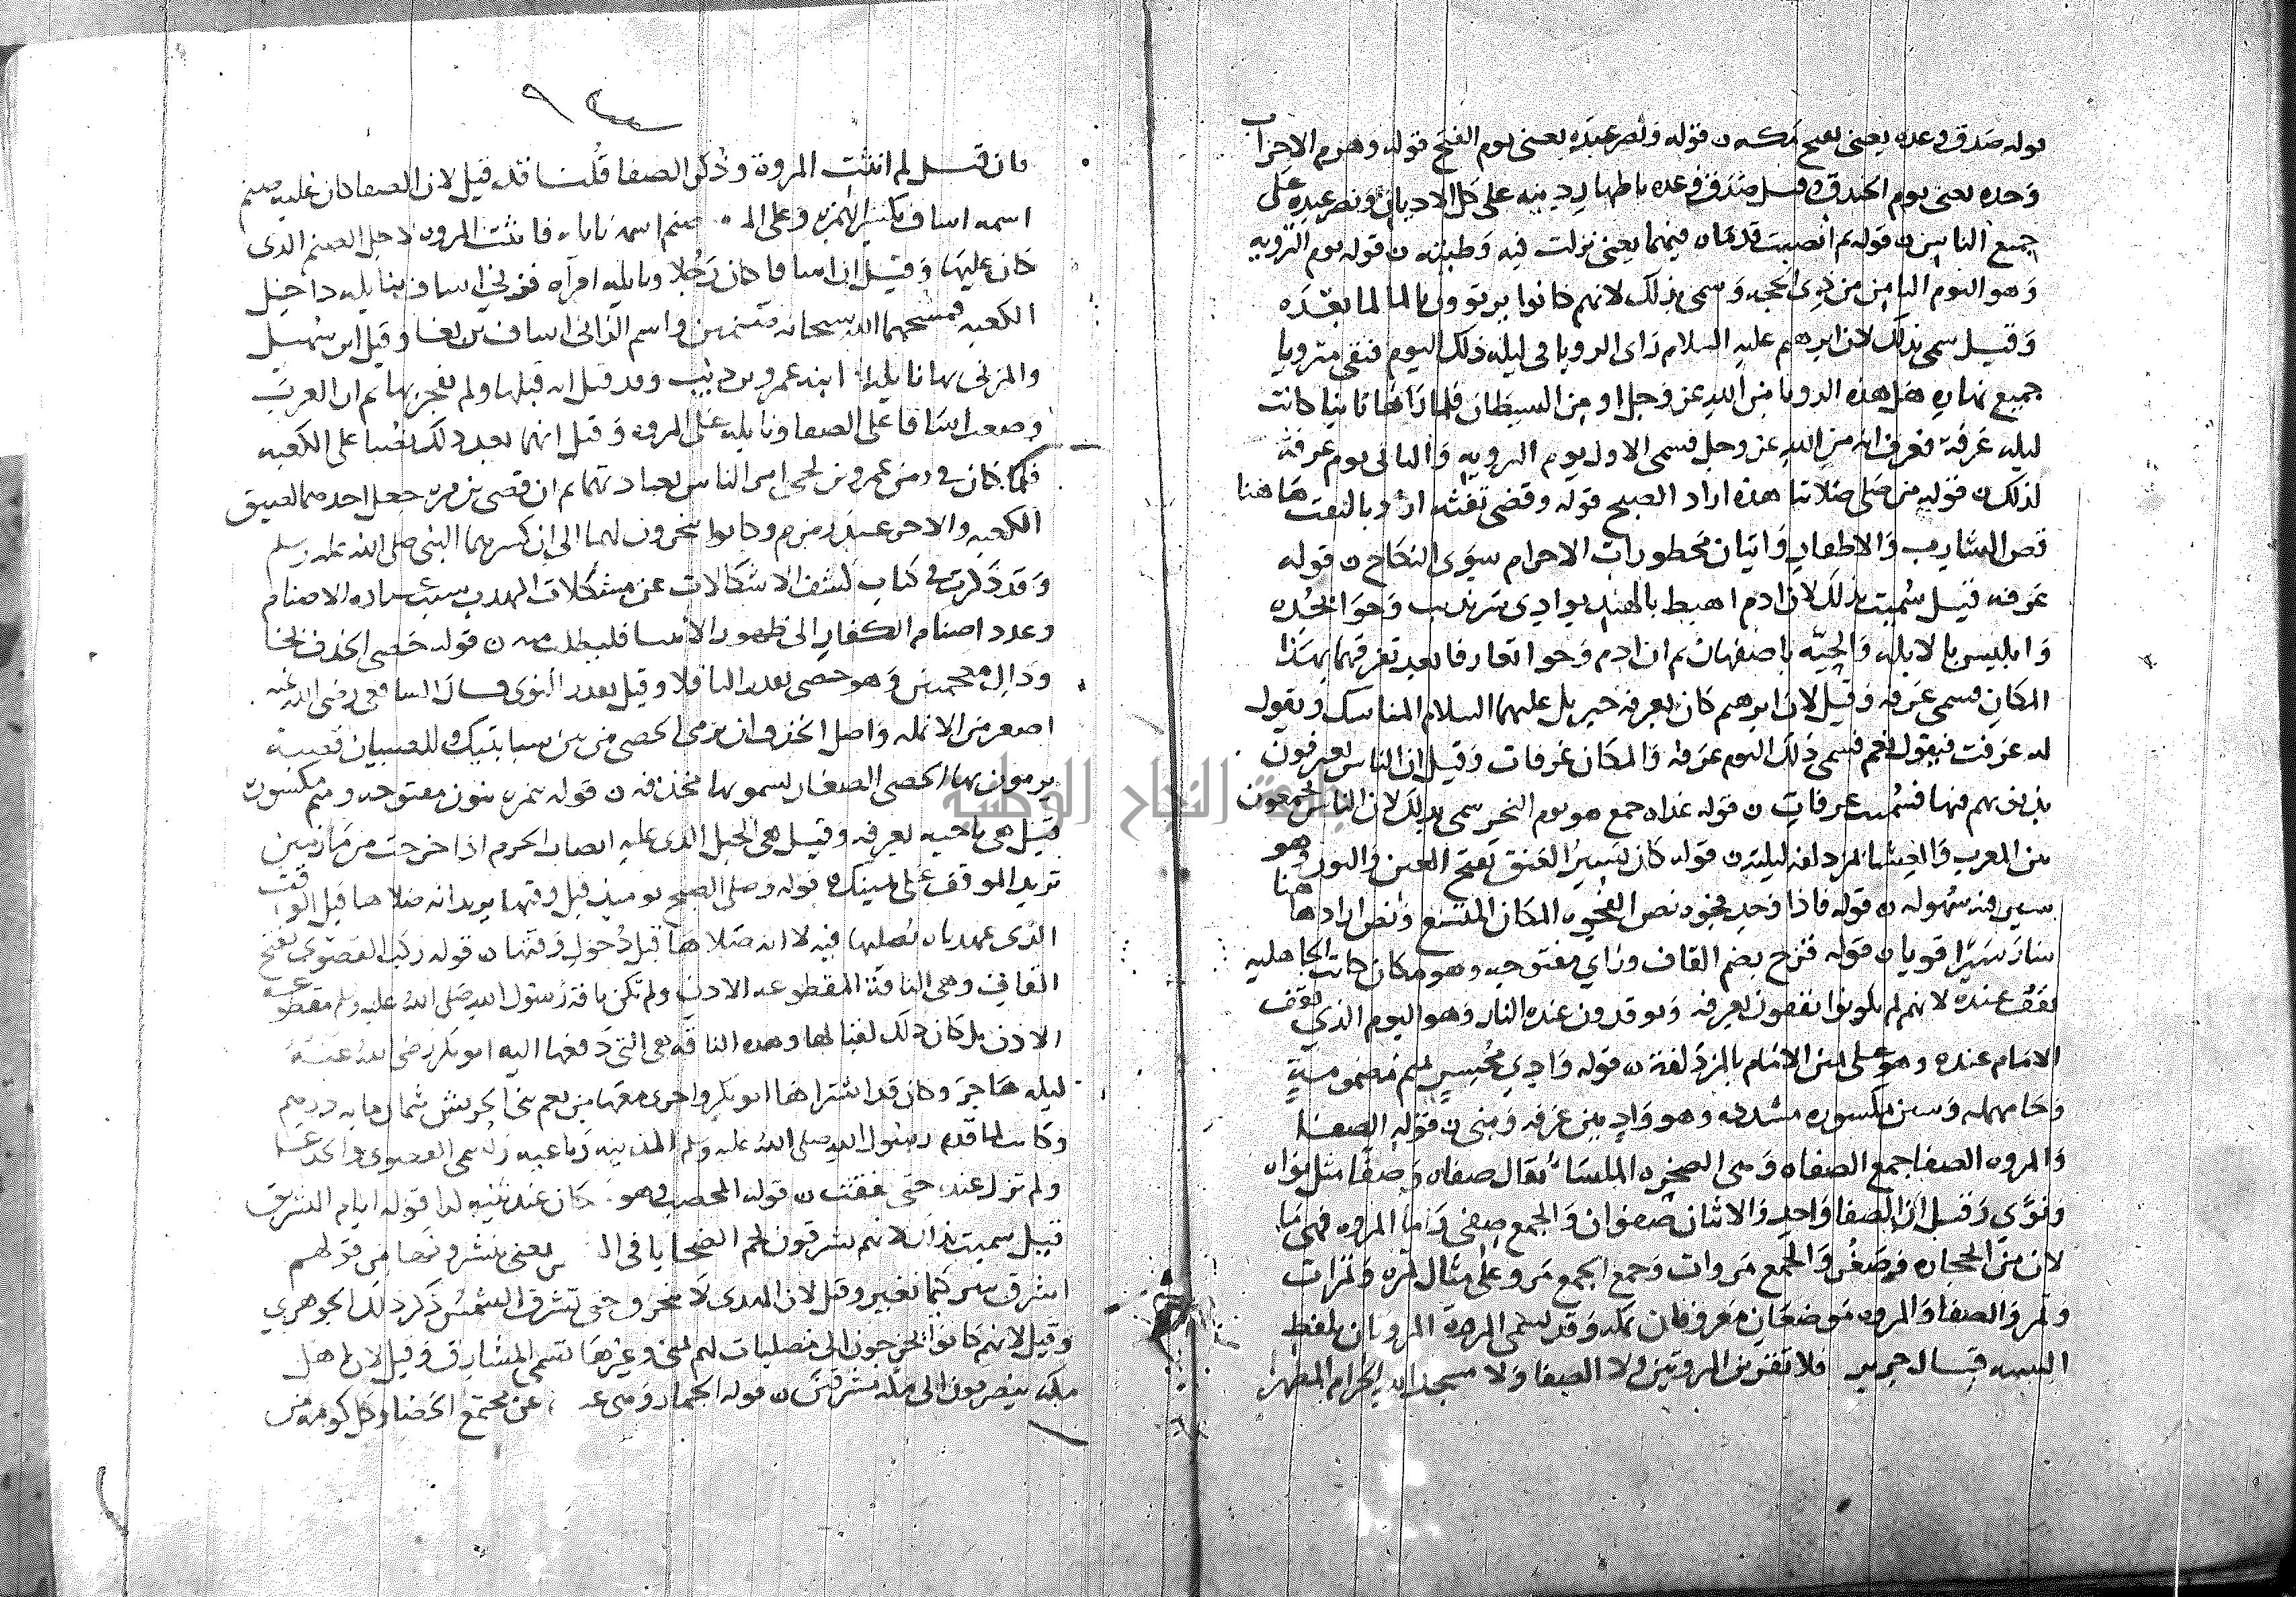 قوله صدق وعده يعنى بفتح مكه ن قوله ونصر عبده يعنى يوم الفتح قوله وهزم الاحزاب
وحده يعنى يوم الخندق وقيل صدق وعده باظهار دينه على كل الاديان ونصر عبده على
جميع الناس ن قوله ثم انصبت قدماه فيهما يعنى نزلت فيه وطبنته ن قوله يوم الترويه
وهو اليوم الثامن من ذى الحجه وسمى بذلك لانهم كانوا يرتوون بالماء لما بعده
وقيل سمى بذلك لان ابرهيم عليه السلام راى الرويا فى ليله ذلك اليوم فبقى مترويا
جميع نهاره هل هذه الرويا من الله عز وجل او من الشيطان فلما راها ثانيا كانت
ليله عرفة فعرف انه من الله عز وجل فسمى الاول يوم الترويه والثانى يوم عرفة
لذلك ن قوله من صلى صلاتنا هذه اراد الصبح قوله وقضى تفثه اراد بالتفث هاهنا
قص الشارب والاظفار واتيان محظورات الاحرام سوى النكاح ن قوله
عرفه قيل سميت بذلك لان ادم اهبط بالهند بوادى سرنديب وحوا بجده
وابليس بالابله والحيه باصفهان ثم ان ادم وحوا تعارفا بعد تفرقهما بهذا
المكان فسمى عرفه وقيل لان ابرهيم كان يعرفه جبريل عليهما السلام المناسك ويقول
له عرفت فيقول نعم فسمى ذلك اليوم عرفه والمكان عرفات وقيل ان الناس يعترفون
بذنوبهم فيها فسميت عرفات ن قوله غداه جمع هو يوم النحر سمى بذلك لان الناس يجمعون
بين المغرب والعشا بالمزدلفه ليلتئذ ن قوله كان يسير العنق بفتح العين والنون وهو
سير فيه سهوله ن قوله فاذا وجد فجوه نص الفجوه المكان المتسع ونص اراد هاهنا
سار سيرا قويا ن قوله قزح بضم القاف وزاي مفتوحه وهو مكان كانت الجاهليه
تقف عنده لانهم لم يكونوا يقفون بعرفه ويوقدون عنده النار وهو اليوم الذي يقف
الامام عنده وهو على يمين الامام بالمزدلفة ن قوله وادي محسر بميم مضمومة
وحا مهمله وسين مكسوره مشدده وهو واد بين عرفه ومنى ن قوله الصفا
والمروه الصفا جمع الصفاه وهى الصخره الملسا يقال صفاه وصفا مثل نواه
ونوى وقيل ان الصفا واحد والاثنان صفوان والجمع صفى واما المروه فهى ما
لان من الحجاره وصغر والجمع مروات وجمع الجمع مرو على مثال تمره وتمرات
وتمر والصفا والمروه موضعان معروفان بمكه وقد تسمى المروة المروتان بلفظ
التثنيه قال جرير فلا تقربن المروتين ولا الصفا ولا مسجد الله الحرام المطهرا
فان قيل لم انثت المروة وذكر الصفا قلنا قد قيل لان الصفا كان عليه صنم
اسمه اساف بكسر الهمزه وعلى المروه صنم اسمه نايله فانثت المروه لاجل الصنم الذى
كان عليها وقيل ان اسافا كان رجلا ونايله امرأه فزنى اساف بنايله داخل
الكعبه فمسخهما الله سبحانه صنمين واسم الزانى اساف بن بغا وقيل ابن سهيل
والمزنى بها نايله ابنه عمرو بن ذئب وقد قيل انه قبلها ولم يفجر بها ثم ان العرب
وضعت اسافا على الصفا ونايله على المروه وقيل انهما بعد ذلك نصبا على الكعبه
فلما كان فى زمن عمرو بن لحى امر الناس بعبادتهما ثم ان قصى بن مره جعل احدهما لصيق
الكعبه والاخر عند زمزم وكانوا ينحرون لهما الى ان كسرهما النبى صلى الله عليه وسلم
وقد ذكرت فى كتاب كشف الاشكالات عن مشكلات المهذب سبب عباده الاصنام
وعدد اصنام الكفار الى ظهور الاسلام فليطلب منه ن قوله حصى الخذف بخا
وذال معجمتين وهو حصى بقدر الباقلا وقيل بقدر النوى قال الشافعى رضى الله عنه
اصغر من الانمله واصل الخذف ان ترمى الحصى من بين سبابتيك وللصبيان قصبة
يرمون بها الحصى الصغار يسمونها مخذفه ن قوله نمره بنون مفتوحه وميم مكسوره
قيل هى ناحيه بعرفه وقيل هى الجبل الذى عليه انصاب الحرم اذا خرجت من مازمين
تريد الموقف على يمينك قوله وصلى الصبح يومئذ قبل وقتها يريد انه صلاها قبل الوقت
الذى عهد بان يصليها فيه لا انه صلاها قبل دخول وقتها ن قوله ركب القصوى بفتح
القاف وهى الناقة المقطوعه الاذن ولم تكن ناقة رسول الله صلى الله عليه وسلم مقطوعه
الاذن بل كان ذلك لقبا لها وهذه الناقه هى التى دفعها اليه ابو بكر رضى الله عنه
ليله هاجر وكان قد اشتراها ابو بكر واخرى معها من نعم بنى الحريش بثمان مايه درهم
وكانت لما قدم رسول الله صلى الله عليه وسلم المدينه رباعيه وتسمى القصوى والجدعا
ولم تزل عنده حتى نفقت ن قوله المحصب وهو كان عند ثنيه كدا قوله ايام التشريق
قيل سميت بذلك لانهم يشرقون لحم الضحايا فى الشمس يعنى ينشرونها من قولهم
اشرق ثبير كيما نغير وقيل لان الهدى لا ينحر حتى تشرق الشمس ذكر ذلك الجوهري
وقيل لانهم كانوا يخرجون الى مصليات لهم بمنى وغيرها تسمى المشارق وقيل لان اهل
مكه ينصرفون الى مكه مشرقين ن قوله الجمار وهى عبارة عن مجتمع الحصا وكل كومه من